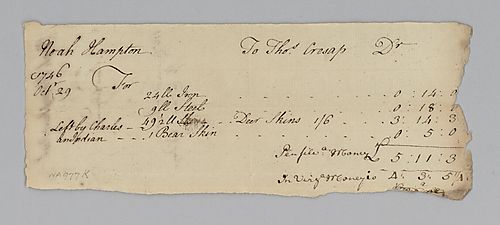 Noah Hampton To Thos. Cresap Dr
1746
Octr 29 For
24 ll Iron 0 : 14 : 0
9 ll Steel 0 : 18 : 0
Left by Charles 49 1/2 ll Deer Skins 1/6 3 : 14 : 3
an Indian 1 Bear Skin 0 : 5 : 0
Pensilva Money £ 5 : 11 : 3
In Virga Money is 4 : 3 : 5 1/4
WA977K